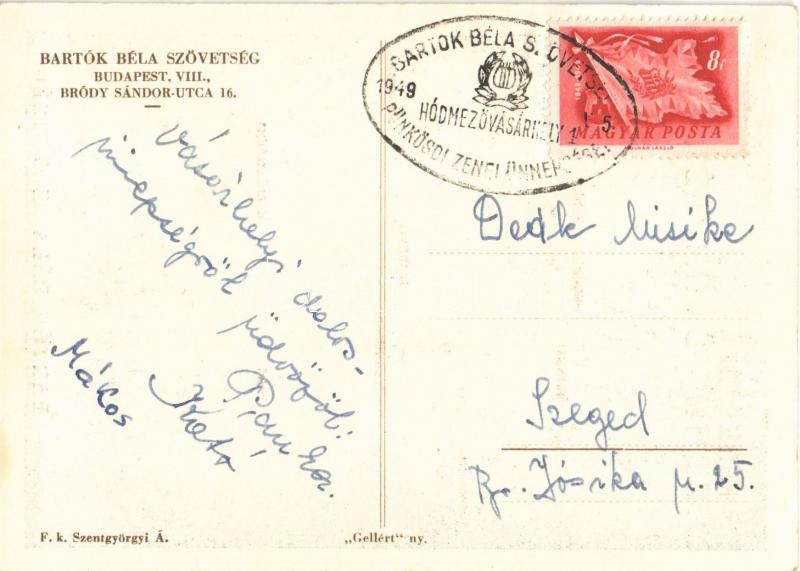 BARTÓK BÉLA SZÖVETSÉG
BUDAPEST, VIII.,
BRÓDY SÁNDOR-UTCA 16.
BARTÓK BÉLA SZÖVETSÉ
1949
HÓDMEZŐVÁSÁRHELY
5.
PÜNKÖSDI ZENEI ÜNNEPSÉGEI
8f
MAGYAR POSTA
Vásárhelyi dalos-
ünnepségről üdvözöl:
Panka.
Kató
Mákos
Deák Misike
Szeged
Br. Jósika u. 25.
F. k. Szentgyörgyi Á.
„Gellért" ny.